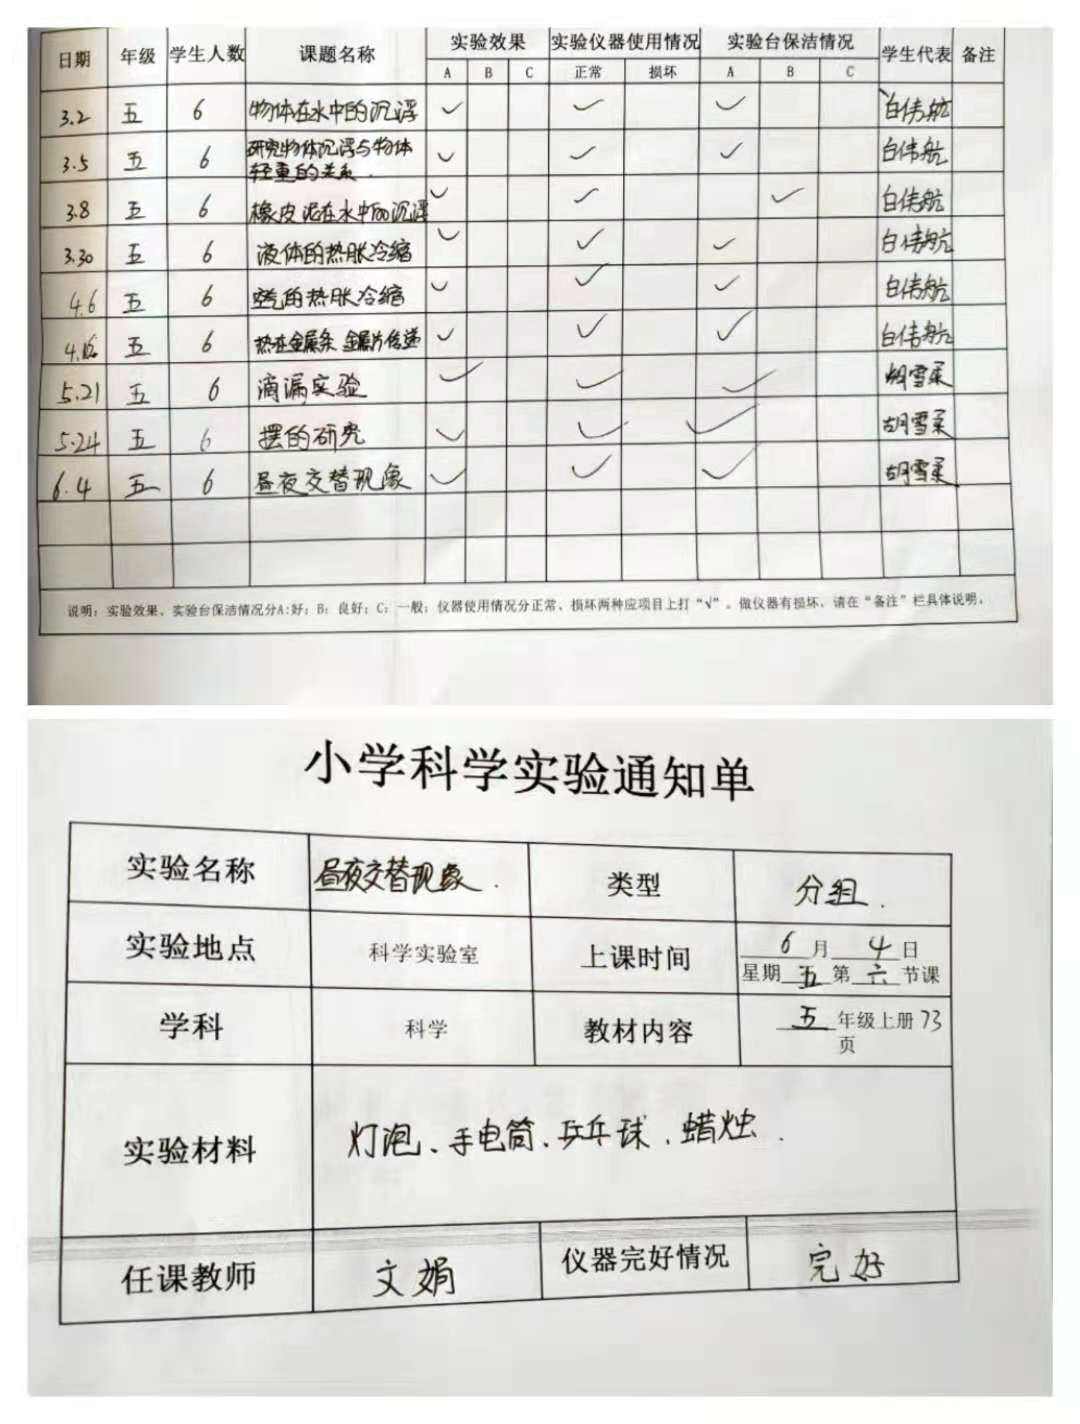 日期 年级 学生人数 课题名称 实验效果 实验仪器使用情况 实验台保洁情况 学生代表 备注
A B C 正常 损坏 A B C
3.2 五 6 物体在水中的沉浮 ✓ ✓ ✓ 白伟航
3.5 五 6 研究物体沉浮与物体 ✓ ✓ ✓ 白伟航
轻重的关系.
3.8 五 6 橡皮泥在水中的沉浮 ✓ ✓ ✓ 白伟航
3.30 五 6 液体的热胀冷缩 ✓ ✓ ✓ 白伟航
4.6 五 6 空气的热胀冷缩 ✓ ✓ ✓ 白伟航
五 6 热在金属条 金属片传递 ✓ ✓ ✓ 白伟航
5.21 五 6 滴漏实验 ✓ ✓ ✓ 胡雪柔
5.24 五 6 摆的研究 ✓ ✓ ✓ 胡雪柔
6.4 五 6 昼夜交替现象 ✓ ✓ ✓ 胡雪柔
说明：实验效果、实验台保洁情况分A:好；B：良好；C：一般；仪器使用情况分正常、损坏两种应项目上打“√”。做仪器有损坏、请在“备注”栏具体说明。
小学科学实验通知单
实验名称 昼夜交替现象. 类型 分组.
实验地点 科学实验室 上课时间 6月4日
星期五第六节课
学科 科学 教材内容 五年级上册73
页
实验材料 灯泡、手电筒、乒乓球、蜡烛.
任课教师 文娟 仪器完好情况 完好